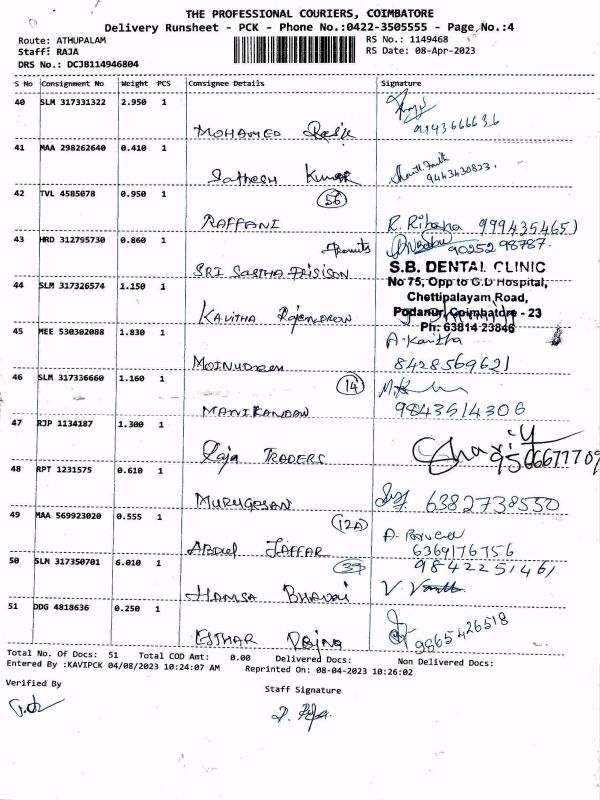 THE PROFESSIONAL COURIERS, COIMBATORE
Delivery Runsheet - PCK - Phone No.:0422-3505555 - Page No.:4
Route: ATHUPALAM
RS No.: 1149468
Staff: RAJA
RS Date: 08-Apr-2023
DRS No.: DCJB114946804
S No Consignment No Weight PCS Consignee Details Signature
40 SLM 317331322 2.950 1
MOHAMED Rafik
41 MAA 298262640 0.410 1
Sathesh Kumar
9443430823.
42 TVL 4585078 0.950 1 56
RAFFANI R. Rihana 9994354651
43 HRD 312795730 0.860 1
9025298787.
SRI SASTHA
S.B. DENTAL CLINIC
44 SLM 317326574 1.150 1
No 75, Opp to G.D Hospital,
Chettipalayam Road,
KAVITHA Rajendren
Podanur, Coimbatore - 23
45 MEE 530302088 1.830 1
Ph: 63814 23846
A. Kavitha
MOINUDEEN 8428569621
46 SLM 317336660 1.160 1 14
MANIKANDAN 9843514306
47 RJP 1134187 1.300 1
Raja TRADERS
48 RPT 1231575 0.610 1
MURUGESAN 6382738550
49 MAA 569923020 0.555 1 12A
ABDUL JAFFAR 6369176756
50 SLM 317350701 6.010 1 39 9842251461
HAMSA
51 DDG 4818636 0.250 1
ESTHAR 9865426518
Total No. Of Docs: 51 Total COD Amt: 0.00 Delivered Docs: Non Delivered Docs:
Entered By :KAVIPCK 04/08/2023 10:24:07 AM Reprinted On: 08-04-2023 10:26:02
Verified By
Staff Signature